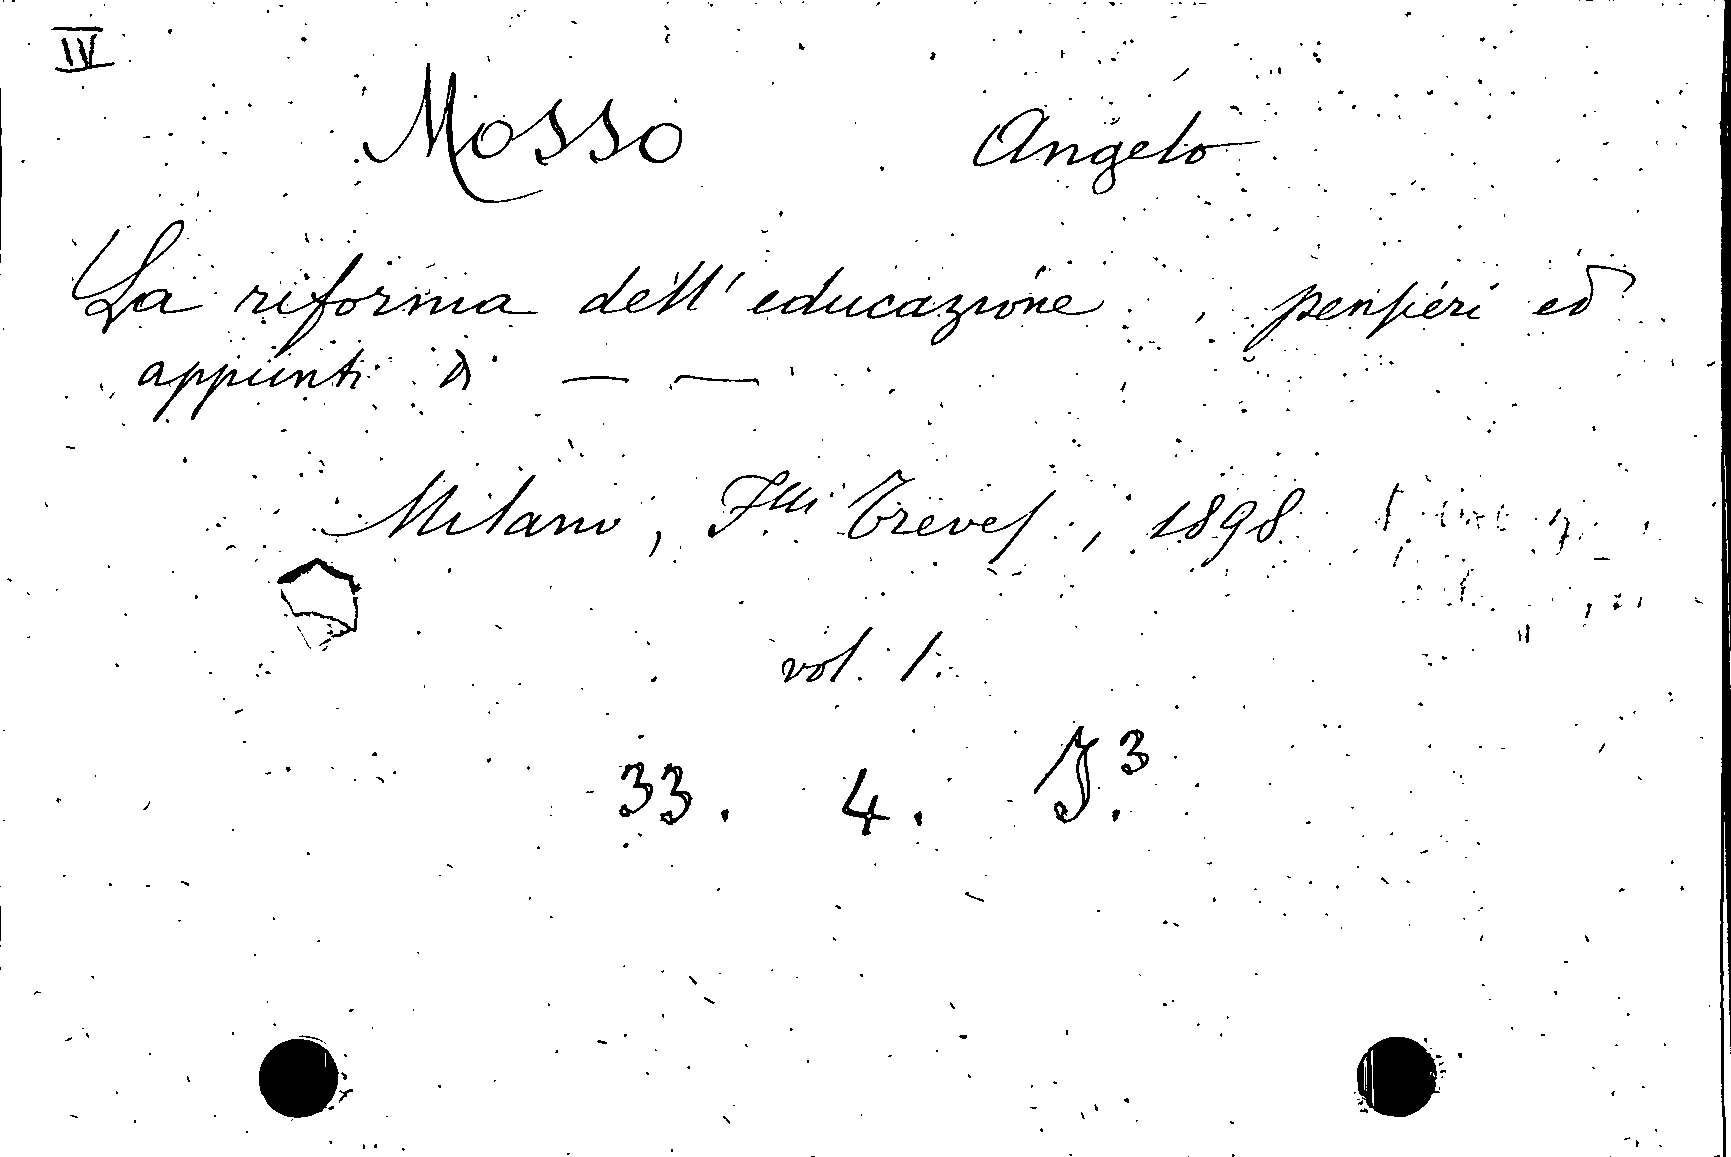 IV
Mosso Angelo
La riforma dell'educazione, pensieri ed
appunti di — —
Milano, Flli Treves, 1898
vol. 1.
33. 4. J.3